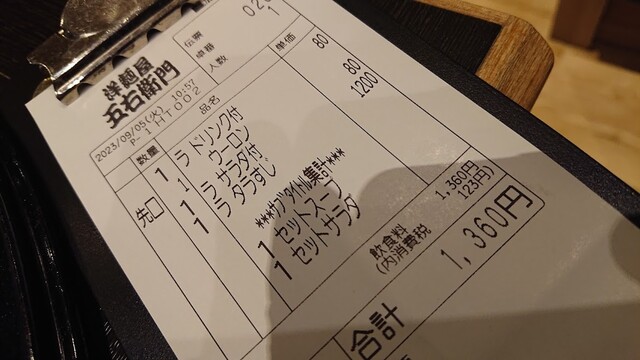 洋麺屋
五右衛門
伝票 020
卓番
人数 1
2023/09/05(火) 10:57
P-1 HT002
数量 品名 単価
1 ラ ドリンク付 80
先□ 1 ウーロン
1 ラ サラダ付 80
1 ラ タラすじ 1200
***サブタイトル集計***
1 セットスープ
1 セットサラダ
飲食料 1,360円
(内消費税 123円)
合計 1,360円